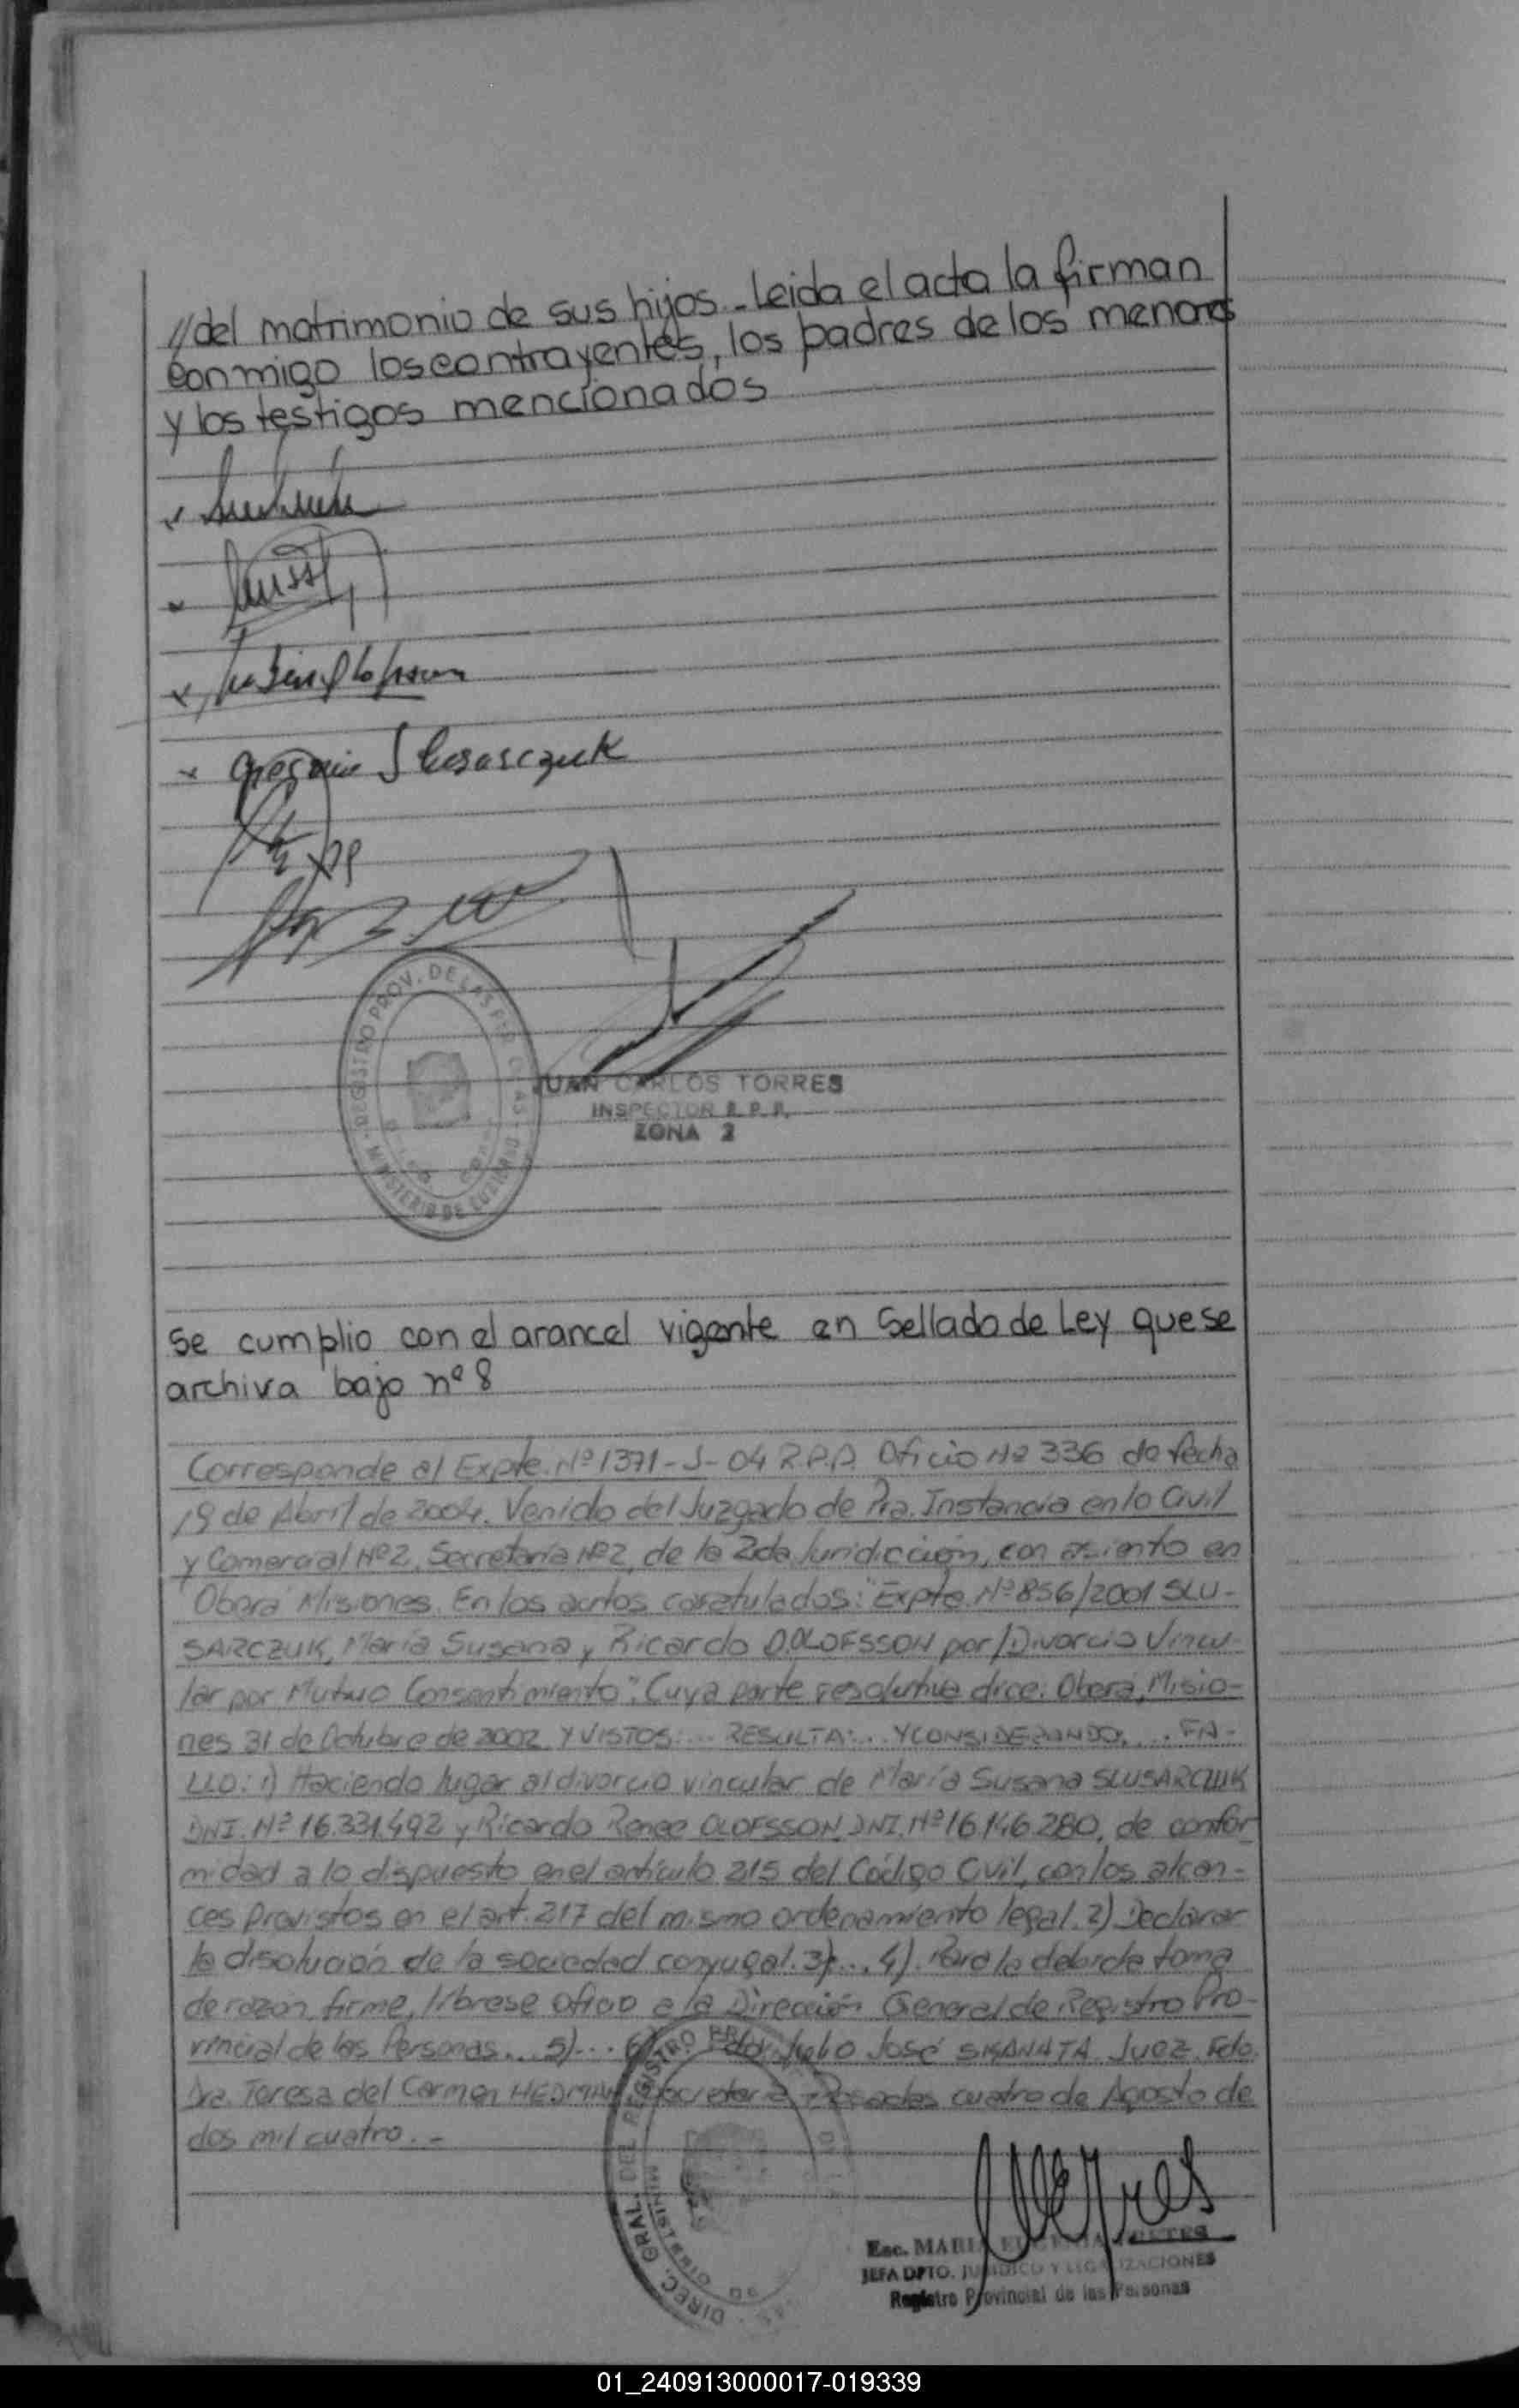 //del matrimonio de sus hijos.- Leida el acta la firman
conmigo los contrayentes, los padres de los menores
y los testigos mencionados
x
x
x
x Gregorio Slusarczuk
REGISTRO PROV. DE LAS PERSONAS
MINISTERIO DE GOBIERNO
JUAN CARLOS TORRES
INSPECTOR R. P. P.
ZONA 2
Se cumplio con el arancel vigente en Sellado de Ley que se
archiva bajo nº 8
Corresponde al Expte. Nº 1371-J-04 R.P.P. Oficio Nº 336 de fecha
19 de Abril de 2004. Venido del Juzgado de Pra. Instancia en lo Civil
y Comercial Nº 2, Secretaría Nº 2, de la 2da Juridicción, con asiento en
Oberá Misiones. En los autos caratulados: "Expte. Nº 856/2001 SLU-
SARCZUK, María Susana y Ricardo OLOFSSON por/Divorcio Vincu-
lar por Mutuo Consentimiento". Cuya parte resolutiva dice: Oberá, Misio-
nes 31 de Octubre de 2002 Y VISTOS:... RESULTA:... Y CONSIDERANDO:... FA-
LLO: 1) Haciendo lugar al divorcio vincular de María Susana SLUSARCZUK
DNI. Nº 16.331.492 y Ricardo Renee OLOFSSON DNI. Nº 16.146.280, de confor-
midad a lo dispuesto en el artículo 215 del Código Civil, con los alcan-
ces previstos en el art. 217 del mismo ordenamiento legal. 2) Declarar
la disolución de la sociedad conyugal. 3)... 4). Para la debida toma
de razón, firme, líbrese oficio a la Dirección General de Registro Pro-
vincial de las Personas... 5)... 6)... Fdo. Julio José SKANATA Juez. Fdo.
Dra. Teresa del Carmen HEDMAN Secretaria. Posadas cuatro de Agosto de
dos mil cuatro.-
DIREC. GRAL. DEL REGISTRO
MINISTERIO
Esc. MARIA EUGENIA
JEFA DPTO. JURIDICO Y LEGALIZACIONES
Registro Provincial de las Personas
01_240913000017-019339